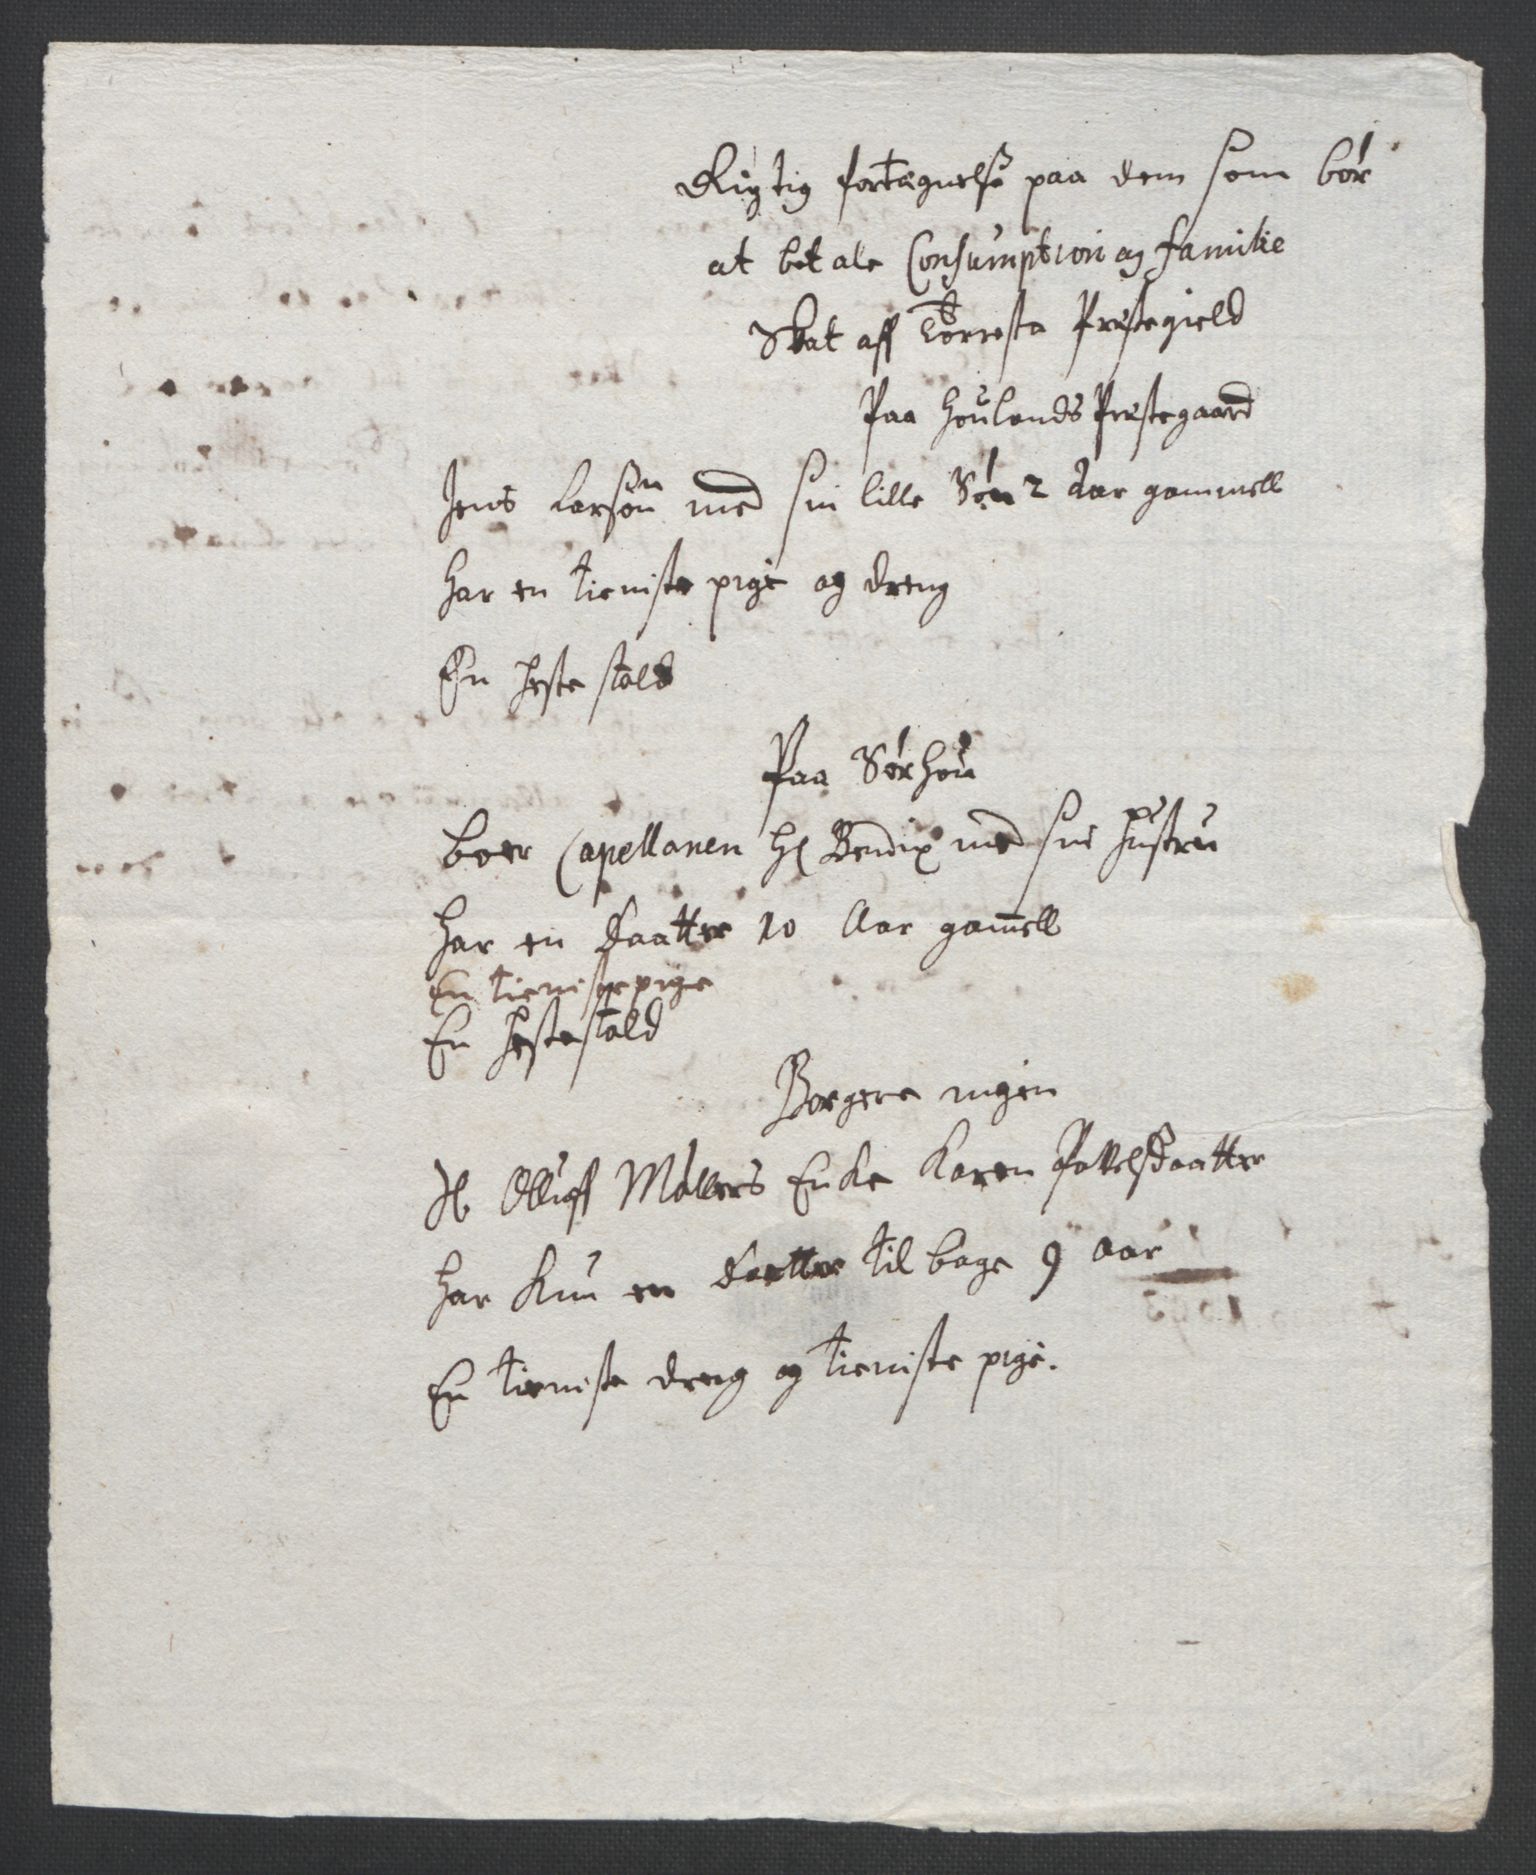 Rigtig fortegnelse paa dem som bør
at betale Consumption og familie
Skat aff Törresta Prestegield
Paa Houlands Prestegaard
Jens Larsøn med sin lille Søn 2 Aar gammell
har en tieniste pige og dreng
En heste stald
Paa Sørhou
boer Capellanen Hr Bendix med sin hustru
har en Daatter 10 Aar gam̄ell
En tieniste pige
En Hestestald
Borgere ingen
Sl. Olluff Møllers Enke Karen Povelsdaatter
har kun en Daatter tilbage 9 Aar
En tieniste dreng og tieniste pige.